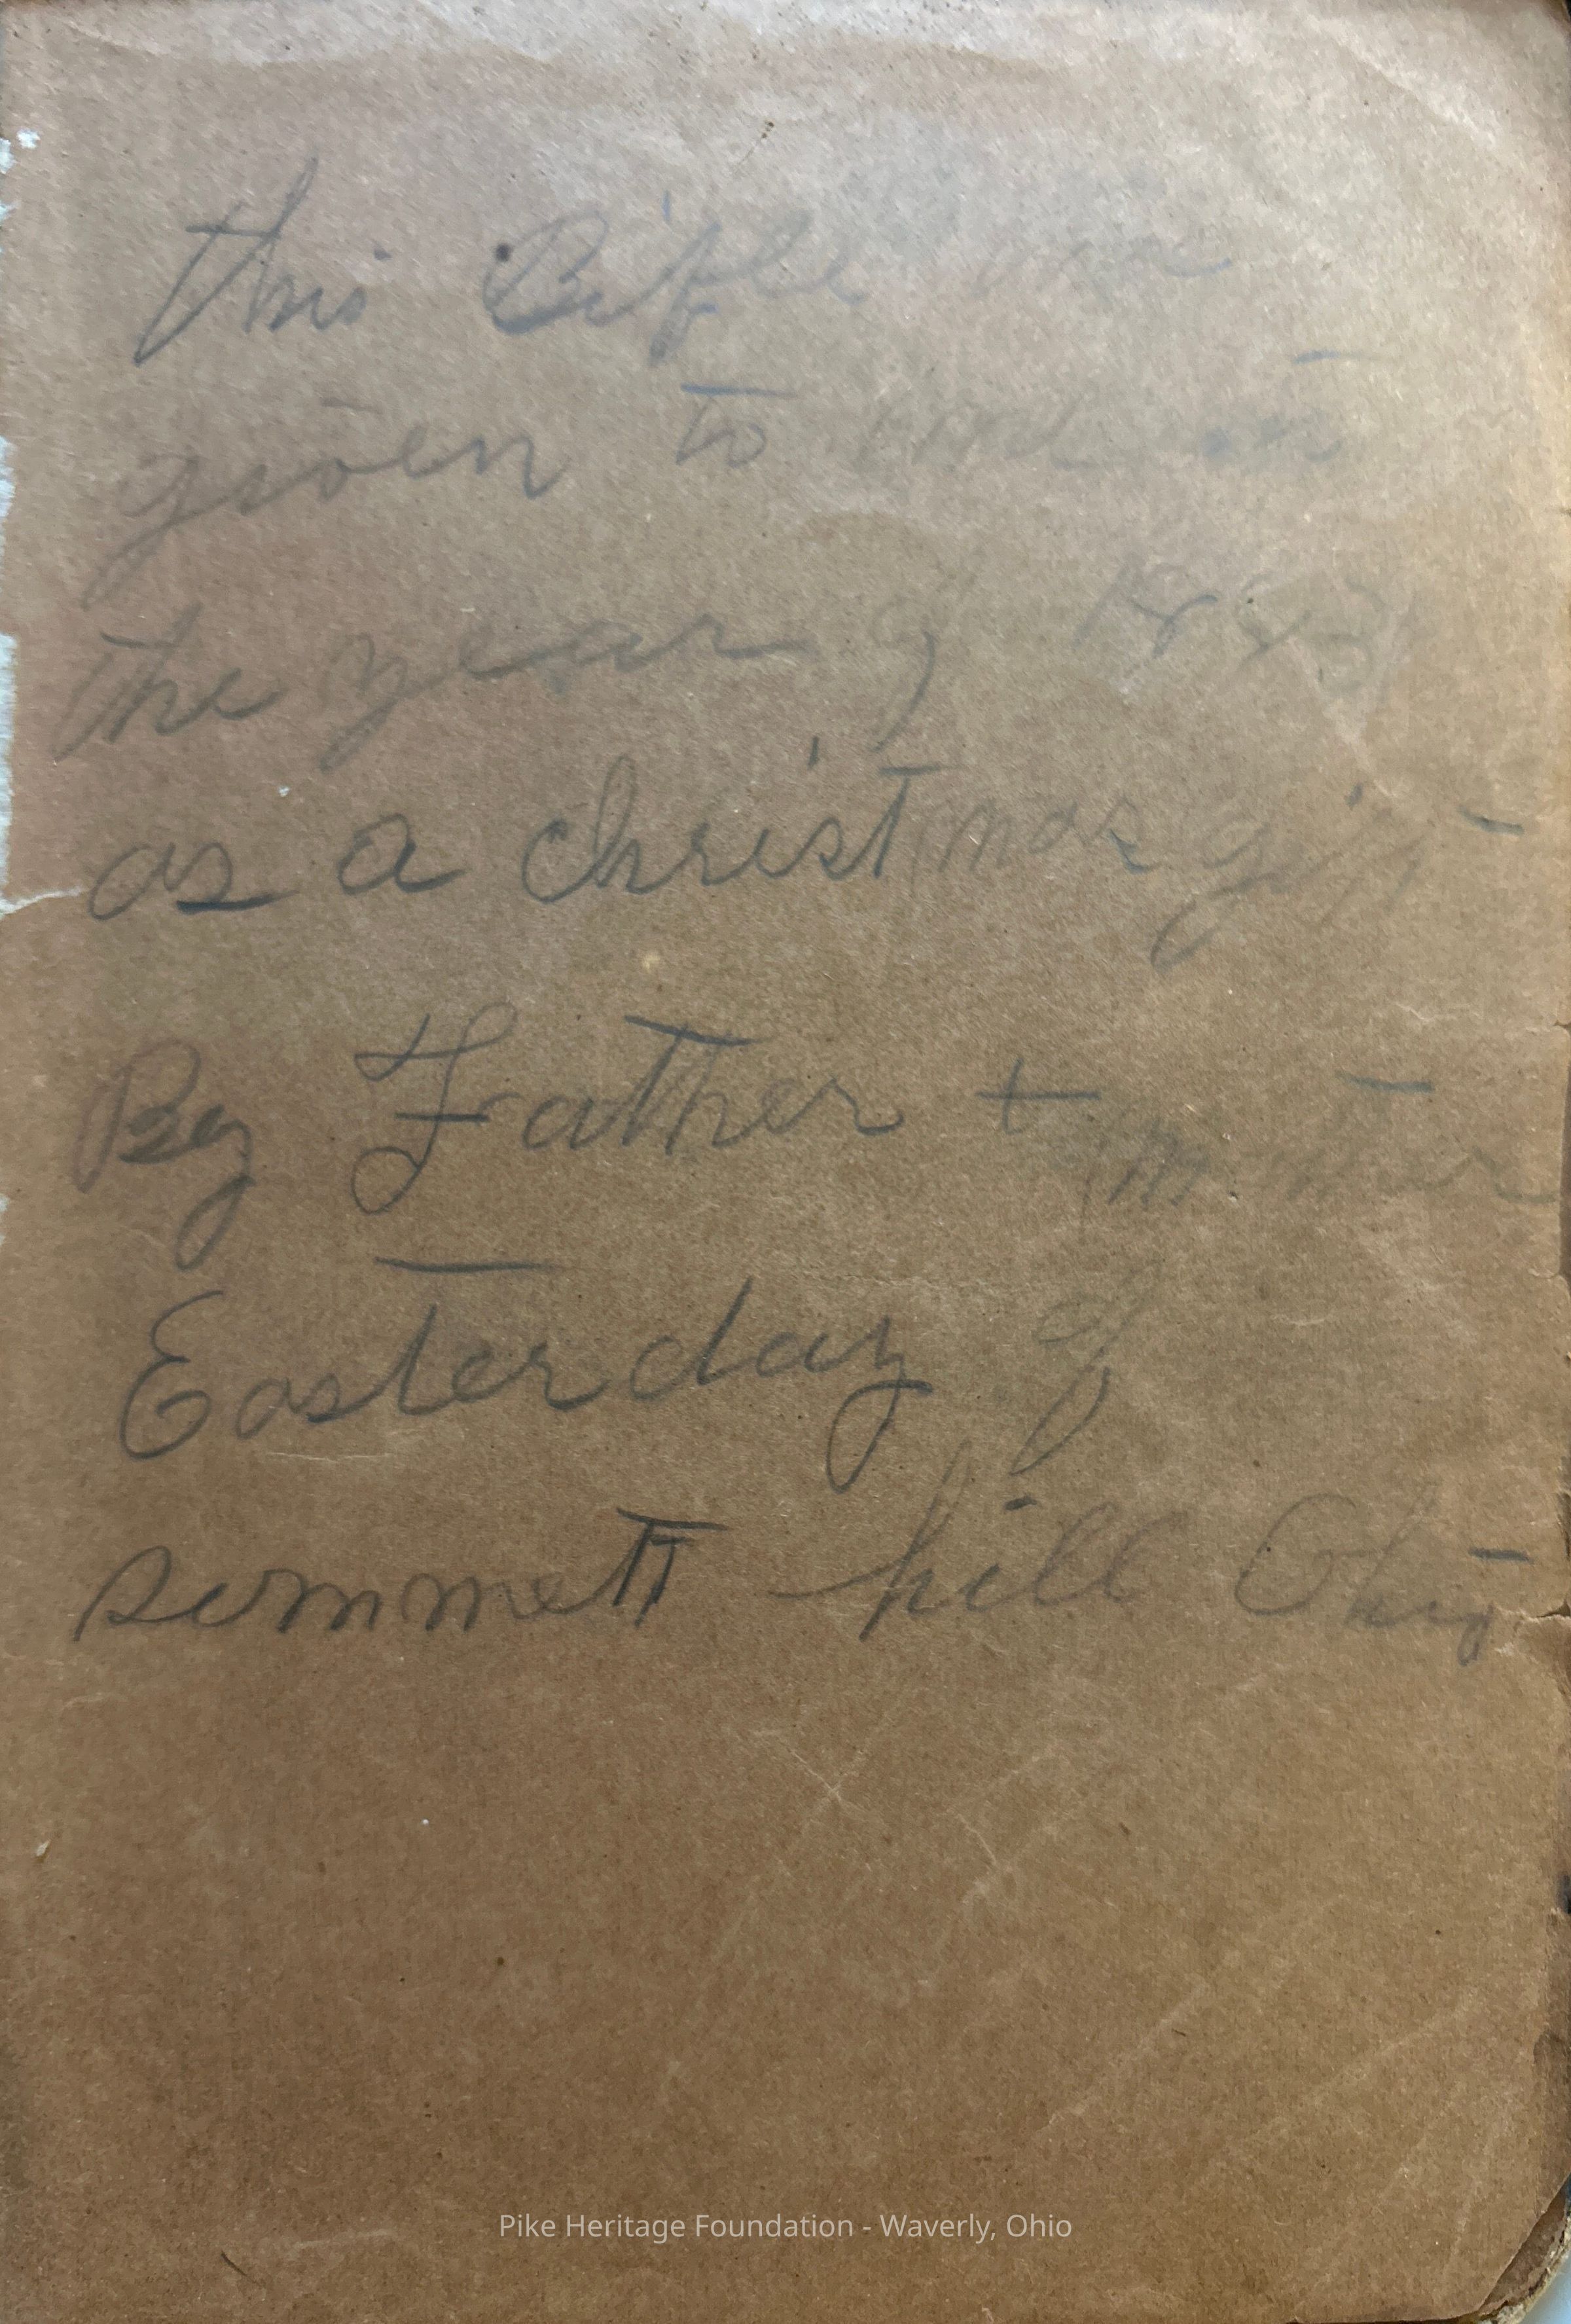 this Bible was
given to in
the year of 1883
as a christmas gift
By Father + mother
Easterday of
summett hill Ohio
Pike Heritage Foundation - Waverly, Ohio